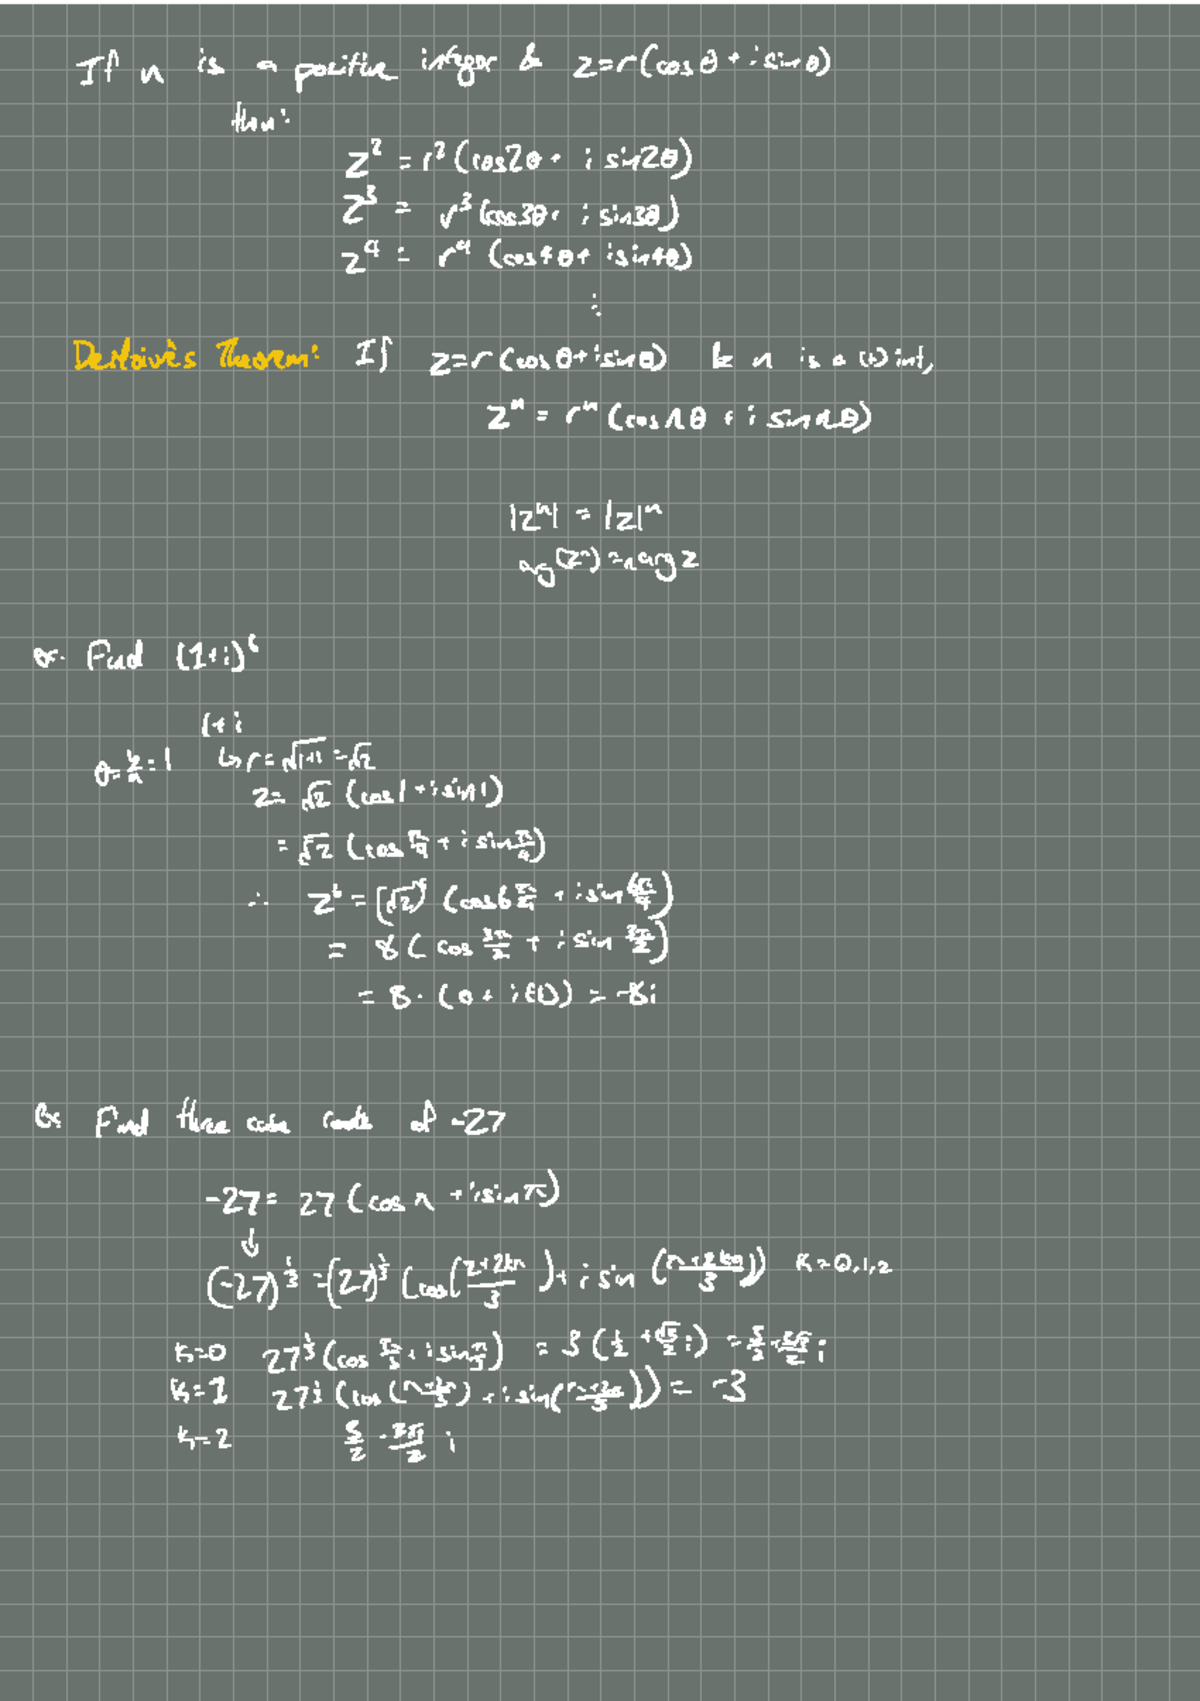 If n is a positive integer & z=r(cosθ+isinθ)
then:
z² = r²(cos2θ + i sin2θ)
z³ = r³(cos3θ + i sin3θ)
z⁴ = r⁴ (cos4θ + isin4θ)
⋮
DeMoivre's Theorem: If z=r(cosθ+isinθ) & n is a (+) int,
zⁿ = rⁿ (cos nθ + i sin nθ)
|zⁿ| = |z|ⁿ
arg(zⁿ) = n arg z
ex. Find (1+i)⁶
1+i
↳ r = √1+1 = √2
z = √2 (cos1 + i sin1)
= √2 (cos π/4 + i sin π/4)
∴ z⁶ = (√2)⁶ (cos6 π/4 + i sin 6π/4)
= 8 ( cos 3π/2 + i sin 3π/2)
= 8 · (0 + i(-1)) = -8i
Ex Find three cube roots of -27
-27 = 27 (cos π + isin π)
↓
(-27)^1/3 = (27)^1/3 (cos( +2kπ/3 ) + i sin (π+2kπ/3)) k=0,1,2
k=0 27^1/3 (cos π/3 + i sin π/3) = 3 (1/2 + √3/2 i) = 3/2 + 3√3/2 i
k=1 27^1/3 (cos (π+2π/3) + i sin(π+2π/3)) = -3
k=2 3/2 - 3√3/2 i